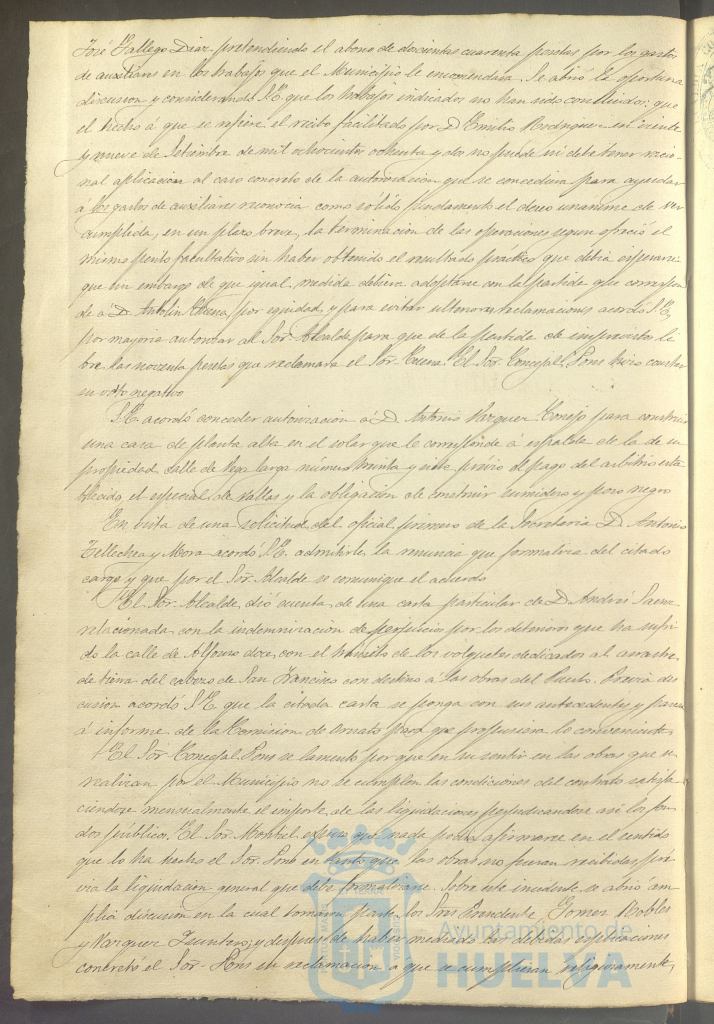 José Gallego Diaz pretendiendo el abono de doscientas cuarenta pesetas por los gastos
de auxiliares en los trabajos que el Municipio le encomendara. Se abrió la oportuna
discusion y considerando S.E. que los trabajos indicados no han sido concluidos; que
el hecho á que se refiere el recibo facilitado por D. Emilio Rodriguez en veinte
y nueve de Setiembre de mil ochocientos ochenta y dos no puede ni debe tener racio-
nal aplicacion al caso concreto de la autorizacion que se concediera para ayudar
á los gastos de auxiliares reconocia como sólido fundamento el deseo unanime de ver
cumplida, en un plazo breve, la terminacion de las operaciones segun ofreció el
mismo perito facultativo sin haber obtenido el resultado práctico que debia esperarse
que sin embargo de que igual medida debiera adoptarse con la partida que correspon-
de á D. Antolin Cuena, por equidad, y para evitar ulteriores reclamaciones acordó S.E.
por mayoria autorizar al Sor. Alcalde para que de la partida de imprevistos li-
bre las noventa pesetas que reclamara el Sor. Cuena. El Sor. Concejal Pons hizo constar
su voto negativo
S.E. acordó conceder autorizacion á D. Antonio Vazquez Conejo para construir
una casa de planta alta en el solar que le corresponde á espalda de la de su
propiedad calle de Vega larga número treinta y siete previo el pago del arbitrio esta-
blecido, el especial de vallas y la obligacion de construir sumidero y pozo negro
En vista de una solicitud del oficial primero de la Secretaria D. Antonio
Tellechea y Mora acordó S.E. admitirle la renuncia que formaliza del citado
cargo y que por el Sor. Alcalde se comunique el acuerdo
El Sor. Alcalde dió cuenta de una carta particular de D. Andrés Saenz
relacionada con la indemnizacion de perjuicios por los deterioros que ha sufri-
do la calle de Alfonso doce, con el tránsito de los volquetes dedicados al arrastre
de tierra del cabezo de San Francisco con destino á las obras del Puerto. Previa dis-
cusion acordó S.E. que la citada carta se ponga con sus antecedentes y pase
á informe de la Comision de Ornato para que propusiera lo conveniente
El Sor. Concejal Pons se lamentó por que en su sentir en las obras que se
realizan por el Municipio no se cumplen las condiciones del contrato satisfa-
ciendose mensualmente el importe de las liquidaciones perjudicandose asi los fon-
dos públicos. El Sor. Montiel expuso que nada podia afirmarse en el sentido
que lo ha hecho el Sor. Pons en tanto que las obras no fueran recibidas pre-
via la liquidacion general que debe formalizarse. Sobre este incidente se abrió am-
plia discusion en la cual tomaron parte los Sres. Presidente, Gomez Robles
y Vazquez Zauntero; y despues de haber mediado las debidas explicaciones
concretó el Sor. Pons su reclamacion á que se cumplieran religiosamente,
Ayuntamiento de
HUELVA